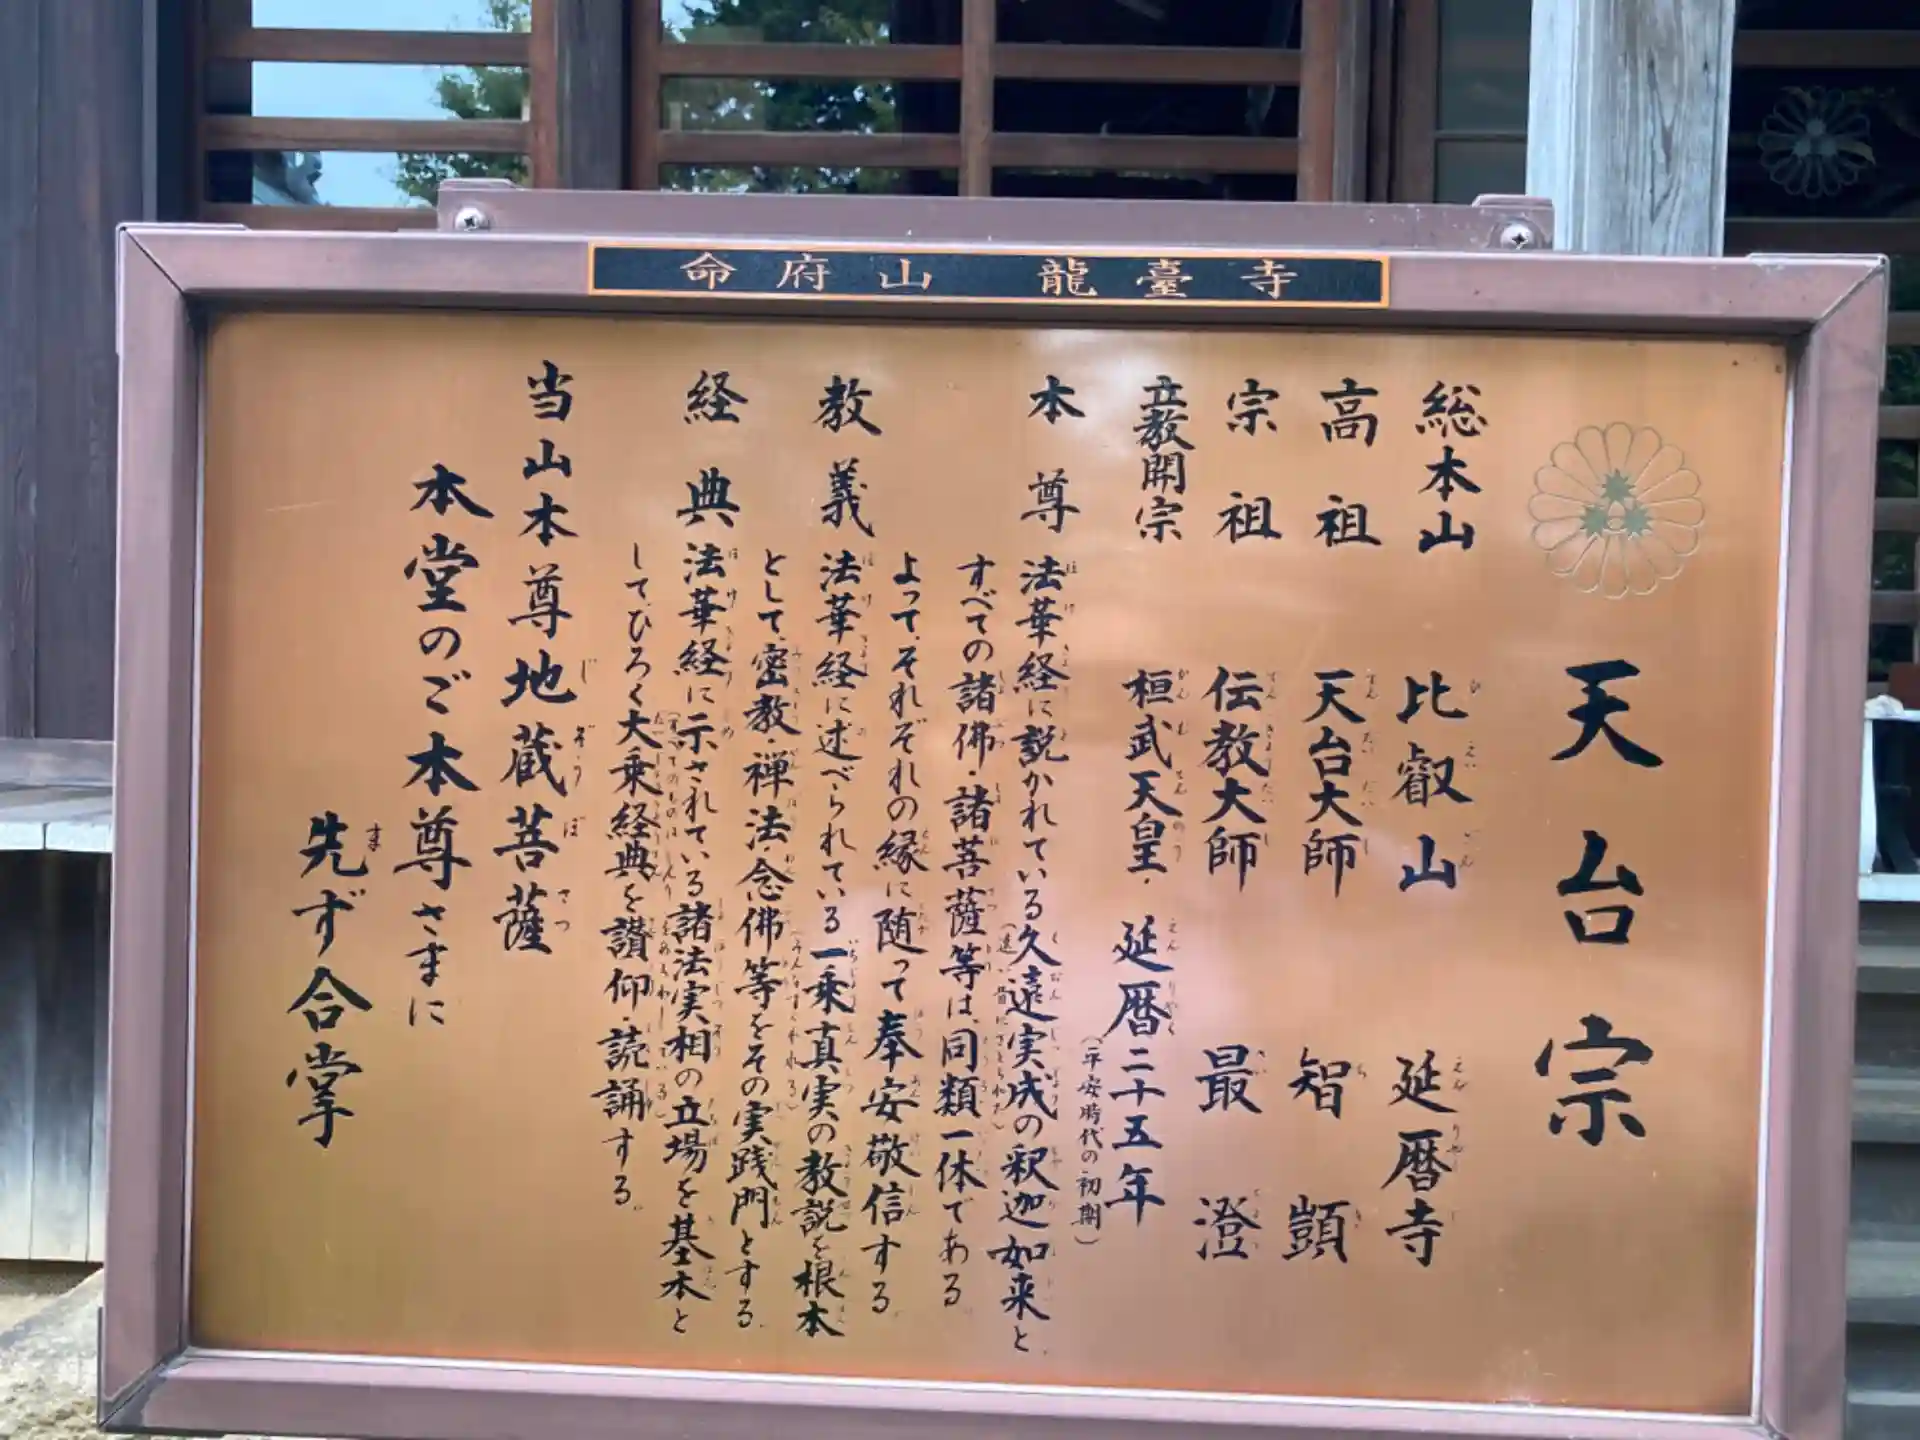 命府山 龍臺寺
天台宗
総本山 比叡山 延暦寺
高祖 天台大師 智顗
宗祖 伝教大師 最澄
立教開宗 桓武天皇・延暦二十五年
（平安時代の初期）
本尊 法華経に説かれている久遠実成の釈迦如来と
すべての諸佛・諸菩薩等は、同類一体である
よって、それぞれの縁に随って奉安敬信する
教義 法華経に述べられている一乗真実の教説を根本
として、密教・禅法・念佛等をその実践門とする
経典 法華経に示されている諸法実相の立場を基本と
してひろく大乗経典を讃仰・読誦する。
当山本尊 地蔵菩薩
本堂のご本尊さまに
先ず合掌